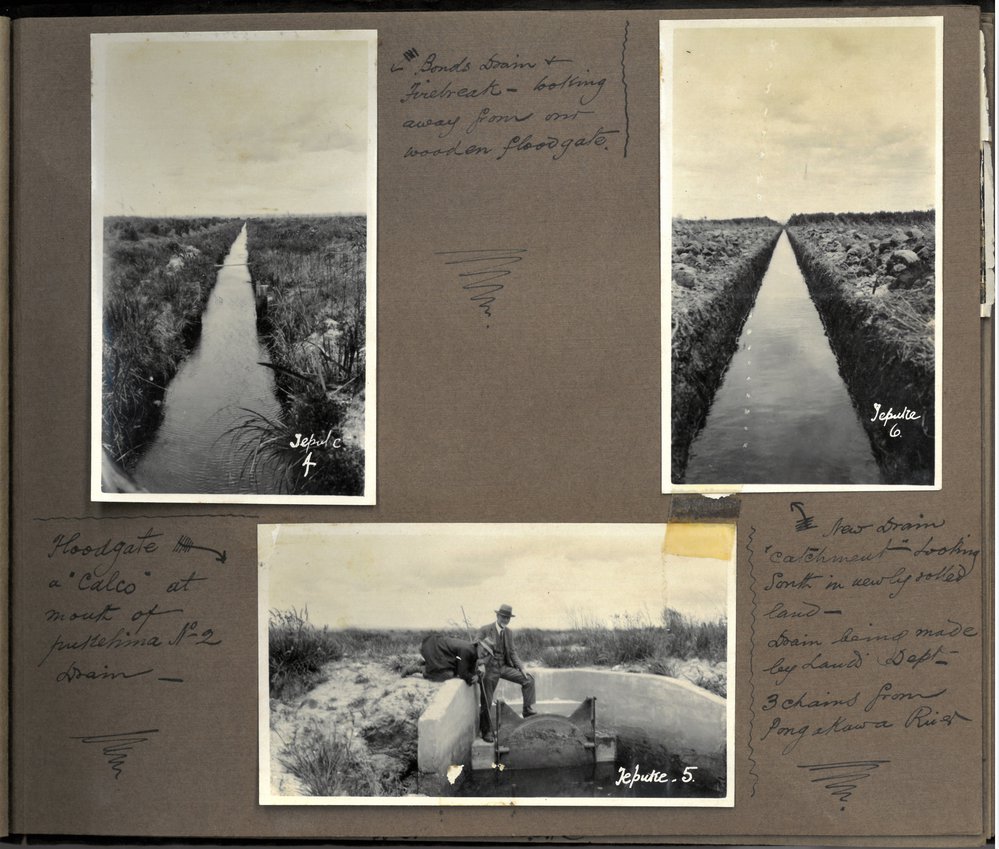 Bonds Drain +
Firebreak – looking
away from our
wooden floodgate.
Tepuke
4
Tepuke
6.
Floodgate
a "Calco" at
mouth of
pukehina No 2
Drain –
Tepuke. 5.
New Drain
"Catchment" Looking
South in newly
land –
Drain being made
by Lands Dept –
3 chains from
Pongakawa River